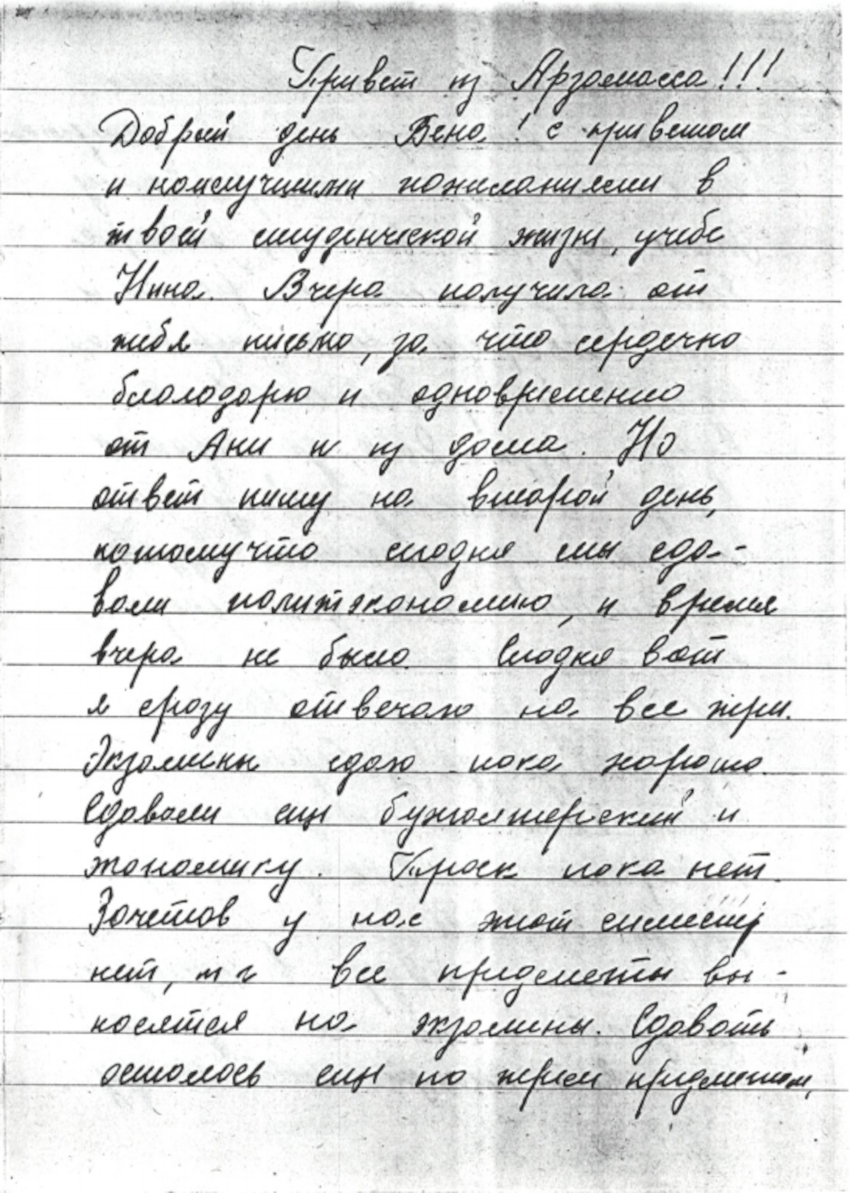 Привет из Арзамасса!!!
Добрый день Вена! с приветом
и наилучшими пожиланиями в
твоей студенческой жизни, учебе
Нина. Вчера получила от
тебя письмо, за что сердечно
благодарю и одновременно
от Ани и из дома. Но
ответ пишу на второй день,
потомучто сегодня мы сда-
вали политэкономию, и время
вчера не было. Сегодня вот
я сразу отвечаю на все три.
Экзамены сдаю пока хорошо.
Сдавали еще бухгалтерский и
экономику. Троек пока нет.
Зачетов у нас этот семестр
нет, т г все предметы вы-
носятся на экзамены. Сдавать
осталось еще по трем предметам,